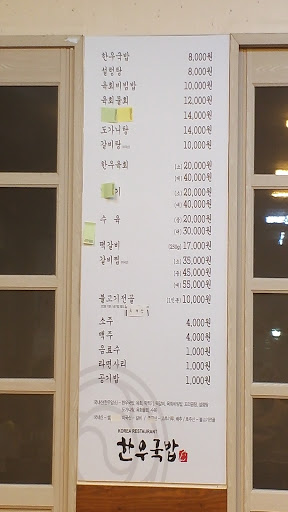 한우국밥 8,000원
설렁탕 8,000원
육회비빔밥 10,000원
육회물회 12,000원
14,000원
도가니탕 14,000원
갈비탕 10,000원
한우육회 (소) 20,000원
(대) 40,000원
기 (소) 20,000원
(대) 40,000원
수육 (중) 20,000원
(대) 30,000원
떡갈비 (250g) 17,000원
갈비찜 (소) 35,000원
(중) 45,000원
(대) 55,000원
불고기전골 (1인분) 10,000원
소주 4,000원
맥주 4,000원
음료수 1,000원
라면사리 1,000원
공기밥 1,000원
KOREA RESTAURANT
한우국밥